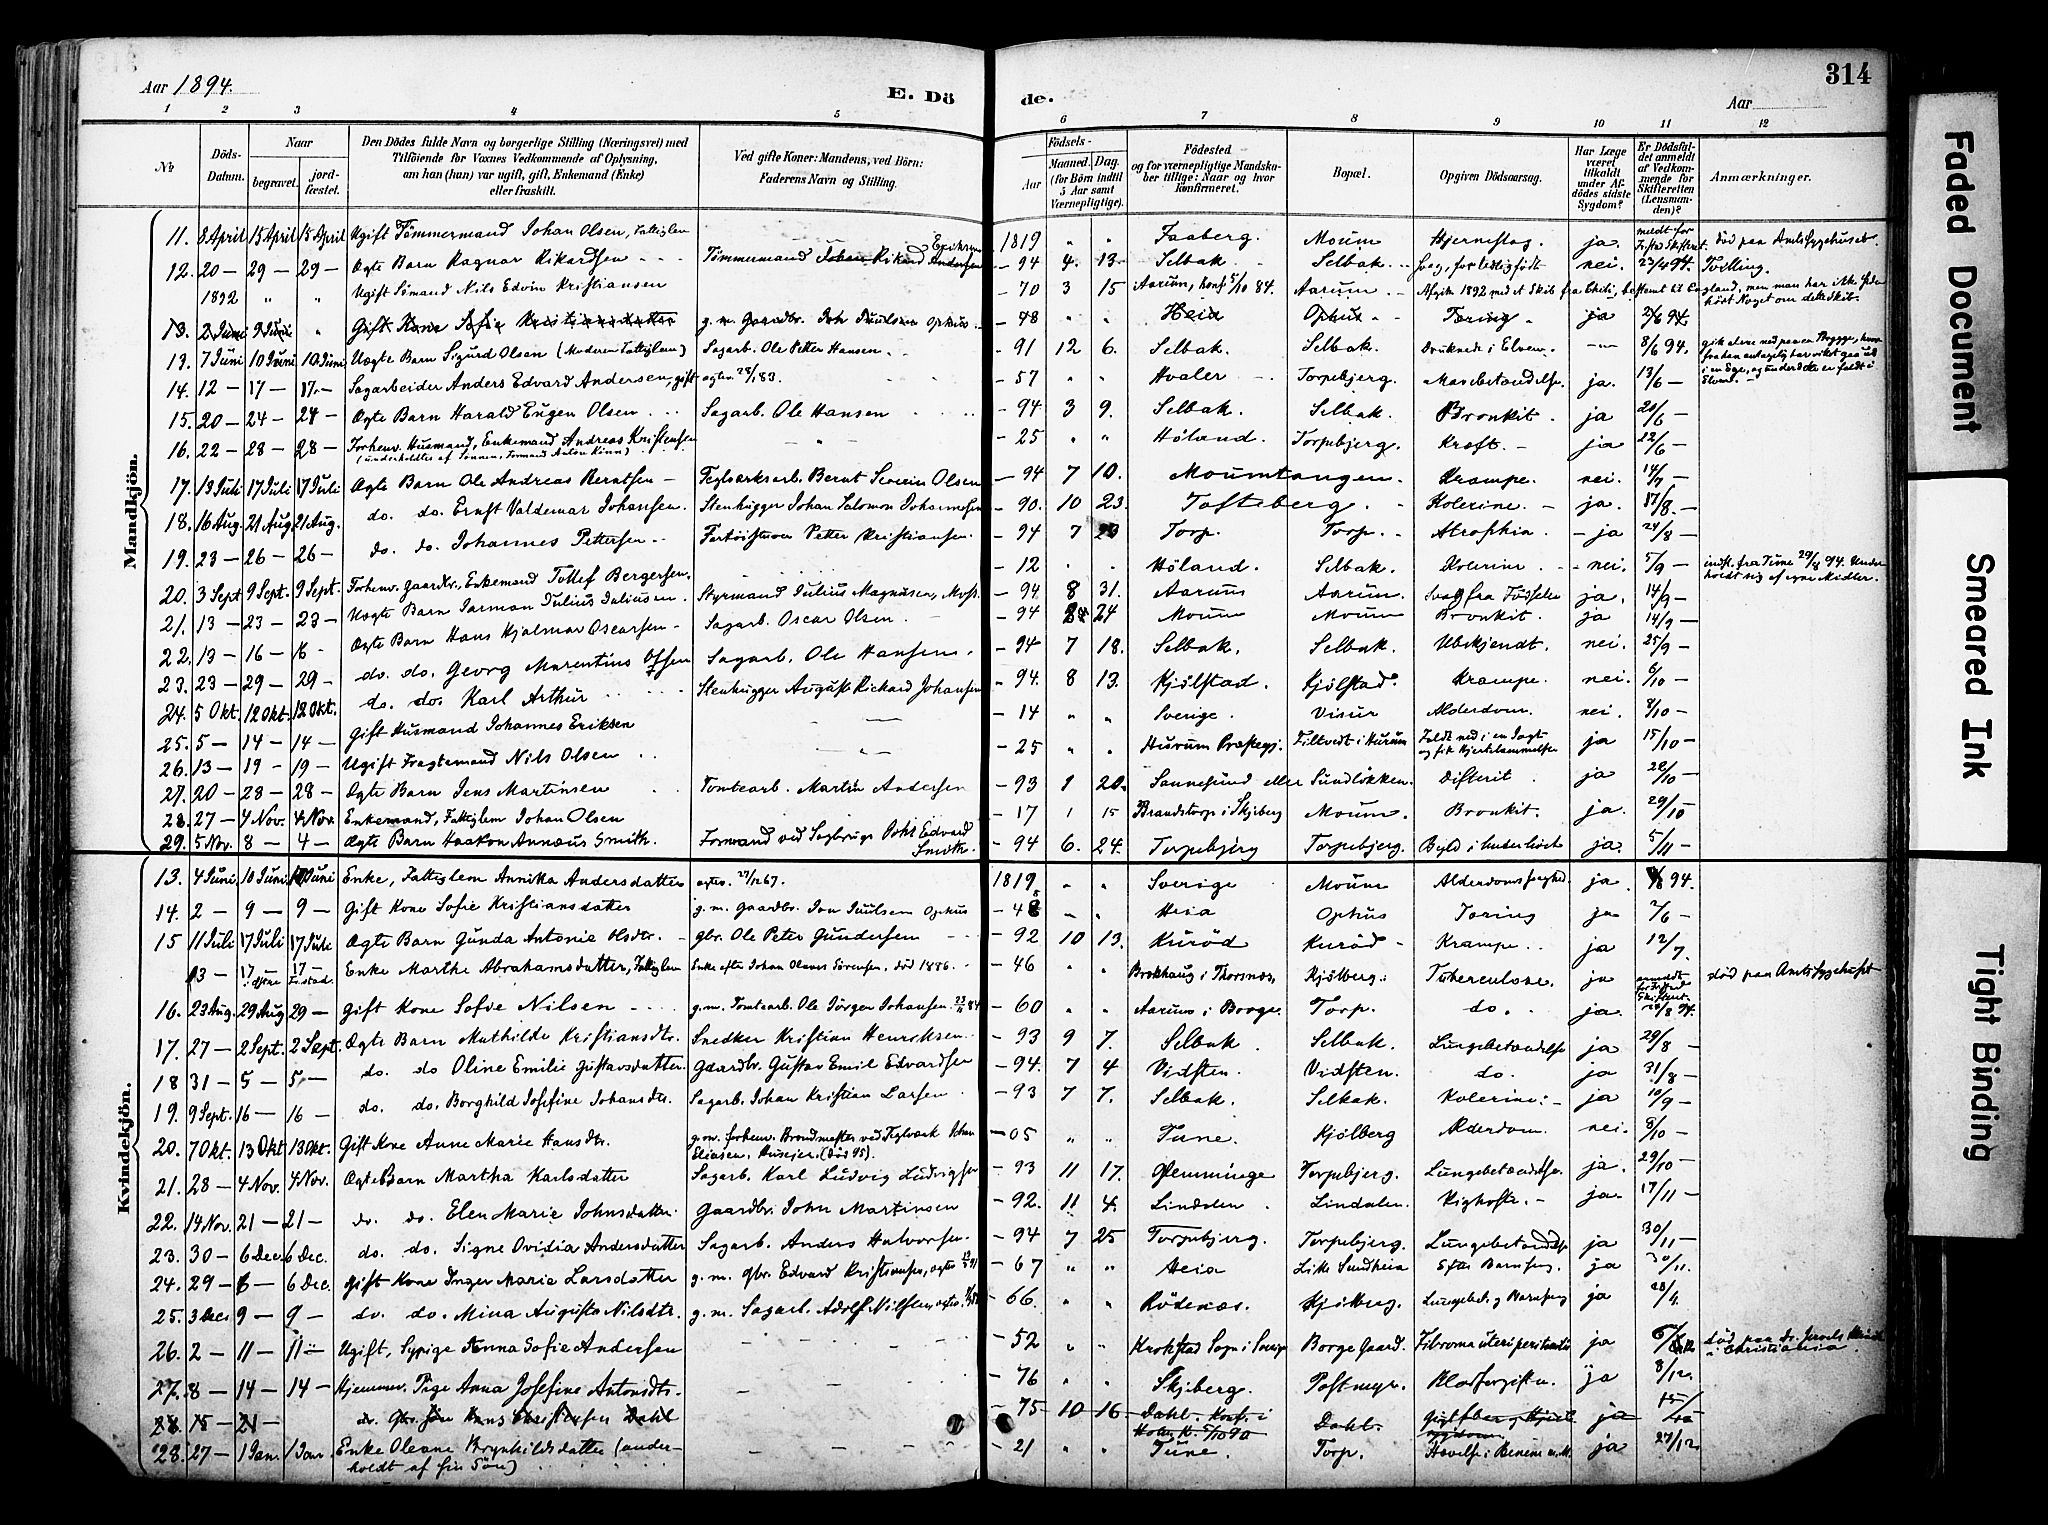 Aar 1894.
E. Döde.
Aar
314
1 2 3 4 5 6 7 8 9 10 11 12
No
Döds-Datum.
Naar
begravet.
jordfæstet.
Den Dödes fulde Navn og borgerlige Stilling (Næringsvei) med Tilföiende for Voxnes Vedkommende af Oplysning, om han (hun) var ugift, gift, Enkemand (Enke) eller fraskilt.
Ved gifte Koner: Mandens, ved Börn: Faderens Navn og Stilling.
Födsels-
Aar
Maaned. Dag. (for Börn indtil 5 Aar samt Værnepligtige).
Födested og for værnepligtige Mandskaber tillige: Naar og hvor konfirmeret.
Bopæl.
Opgiven Dödsaarsag.
Har Læge været tilkaldt under Afdödes sidste Sygdom?
Er Dödsfaldet anmeldt af Vedkommende for Skifteretten (Lensmanden)?
Anmærkninger.
Mandkjön.
11. 8 April 15 April 15 April Ugift Tömmermand Johan Olsen, Fattiglem 1819 " " Faaberg. Moum Hjerneslag. ja. død paa Amtssygehuset.
12. 20 — 29 — 29 — Ægte Barn Ragnar Rikardsen Tömmermand Johan Rikard Andersen Eriksen — 94 4. 13. Selbak. Selbak. Svag, for tidlig födt nei. 23/4 94. Tvilling.
1892 " " Ugift Sömand Nils Edvin Kristiansen — 70 3 15 Aarum, konf. 5/10 84. Aarum. Afgik 1892 med et Skib fra Chili, bestemt til England, men man har ikke siden hört Noget om dette Skib.
13. 2 Juni 9 Juni " Gift Kone Sofie Kristiansdatter g. m. Gaardbr. Joh Juulsen Ophus — 48 " " Heia Ophus Tæring ja 2/6 94.
13. 7 Juni 10 Juni 10 Juni Uægte Barn Sigurd Olsen (Moderen Fattiglem) Sagarb. Ole Petter Hansen — 91 12 6. Selbak. Selbak. Druknede i Elven. 8/6 94.
14. 12 — 17 — 17 — Sagarbeider Anders Edvard Andersen, gift ægtev. 28/1 83. — 57 " " Hvaler Torpebjerg. ja. 13/6 —
15. 20 — 24 — 24 — Ægte Barn Harald Eugen Olsen Sagarb. Ole Hansen — 94 3 9. Selbak. Selbak. Bronkit. ja 20/6 —
16. 22 — 28 — 28 — Forhenv. Husmand, Enkemand Andreas Kristensen — 25 " " Höland. Torpebjerg. Kræft. — ja 22/6 —
17. 13 Juli 17 Juli 17 Juli Ægte Barn Ole Andreas Berntsen Teglværksarb. Bernt Severin Olsen — 94 7 10. Moumtangen. Krampe. nei. 14/7 —
18. 16 Aug. 21 Aug. 21 Aug. do. do. Ernst Valdemar Johansen. Stenhugger Johan Salomon Johannesen — 90. 10 23. Tofteberg. Kolerine. — ja. 17/8 —
19. 23 — 26 — 26 — do. do. Johannes Pettersen Petter Kristiansen. — 94 7 Torp. Torp. Atrophia — ja 24/8 —
20. 3 Sept 9 Sept. 9 Sept. Forhenv. Gaardbr. Enkemand Tollef Bergersen. — 12 " " Höland. Selbak. Kolerine nei. 5/9 — indfl. fra Tune 29/8 94. Underholdt sig af egne Midler.
21. 13 — 23 — 23 — Uægte Barn Jarman Julius Juliusen. Styrmand Julius Magnusen, Moss. — 94. 8 31. Aarum Aarum. Svag fra Födselen ja. 14/9 —
22. 13 — 16 — 16 — Ægte Barn Hans Hjalmar Oscarsen Sagarb. Oscar Olsen. — 94 24 Moum Moum Bronkit. ja 14/9 —
23. 23 — 29 — 29 — do. do. Georg Marentius Olsen Sagarb. Ole Hansen. — 94 7 18. Selbak. Selbak. Ubekjendt. nei. 25/9 —
24. 5 Okt. 12 Okt. 12 Okt. do. do. Karl Arthur Stenhugger August Rickard Johansen — 94. 8 13. Kjölstad. Kjölstad. Krampe. nei. 6/10 —
25. 5 — 14 — 14 — Gift Husmand Johannes Eriksen — 14 " " Sverige. Visur Alderdom. nei. 8/10 —
26. 13 — 19 — 19 — Ugift Fragtemand Nils Olsen — 25 " " Hurum Præstegj. Filtvedt i Hurum Faldt ned i en Jagt og fik Hjertelammelse ja 15/10 —
27. 20 — 28 — 28 — Ægte Barn Jens Martinsen Tomtearb. Martin Andersen — 93 1 20. Sannesund eller Sundlökken. Difterit. ja 22/10 —
28. 27 — 4 Nov. 4 Nov. Enkemand, Fattiglem Johan Olsen — 17 1 15 Brandstorp i Skjeberg Moum. Bronkit. ja. 29/10
29. 5 Nov. 8 — 4 — Ægte Barn Haakon Annæus Smith. Formand ved Sagbrug Johs Edvard Smith. — 94 6. 24. Torpebjerg Torpebjerg. ja. 5/11 —
Kvindekjön.
13. 4 Juni 10 Juni 10 Juni Enke, Fattiglem Annika Andersdatter ægtev. 27/12 67. 1819 " " Sverige Moum Alderdomssvaghed. ja. 94.
14. 2 — 9 — 9 — Gift Kone Sofie Kristiansdatter g. m. Gaardbr. Jon Juulsen Ophus — 48 " " Heia Ophus Tæring ja 2/6 —
15 11 Juli 17 Juli 17 Juli Ægte Barn Gunda Antonie Olsdtr. Gbr. Ole Peter Gundersen — 92 10 13. Kuröd Kuröd — Krampe. ja 12/7.
13 — 17 — 17 — Enke Marthe Abrahamsdatter, Fattiglem Enke efter Johan Olaves Sörensen, död 1886. — 46 " " Brokhaug i Thorsnæs. Kjölberg. Tuberculose. ja død paa Amtssygehuset
16. 23 Aug. 29 Aug 29 — Gift Kone Sofie Nilsen g. m. Tomtearb. Ole Jörgen Johansen. 84 — 60 " " Aarum i Borge. Torp. do. ja. 28/8 94.
17. 27 — 2 Sept. 2 Sept. Ægte Barn Mathilde Kristiansdtr. Snedker Kristian Henriksen. — 93 9 7. Selbak. Selbak. Lungebetændelse ja 29/8 —
18 31 — 5 — 5 — do. do Oline Emilie Gustavsdatter. Gaardbr. Gustav Emil Edvardsen — 94. 7 4 Vidsten. Vidsten. do. ja 31/8 —
19. 9 Sept. 16 — 16 — do. do. Borghild Josefine Johansdtr. Sagarb. Johan Kristian Larsen. — 93 7 7. Selbak. Selbak. Kolerine. — ja 10/9 —
20. 7 Okt. 13 Okt 13 Okt. Gift Kone Anne Marie Hansdtr. g. m. forhenv. Brandmester ved Teglværk Johan Eliasen. Huseier. (Död 95). — 05 " " Tune. Kjölberg Alderdom. nei. 8/10 —
21. 28 — 4 Nov. 4 Nov. Ægte Barn Martha Karlsdatter Sagarb. Karl Ludvig Ludvigsen — 93 11 17. Glemminge Torpebjerg. Lungebetændelse. ja. 29/10 —
22. 14 Nov. 21 — 21 — do. do. Elen Marie Johnsdatter. Gaardbr. John Martinsen — 92. 11 4. Lindalen. Lindalen. Kighoste. — ja. 17/11 —
23. 30 — 6 Dec. 6 Dec. do. do. Signe Ovidia Andersdatter Sagarb. Anders Halvorsen. — 94 7 25 Torpebjerg. Torpebjerg. Lungebetændelse ja 30/11 —
24. 29 — 6 — 6 Dec. Gift Kone Inger Marie Larsdatter g. m. Gbr. Edvard Kristiansen, ægtev. — 67 " " Heia Lille Sundheia Efter Barnseng. ja 30/11.
25. 3 Dec 9 — 9 — do. do. Mina Augusta Nilsdtr. g. m. Sagarb. Adolf Nilsen, ægtev. — 66. " " Rödenæs. Kjölberg. Lungebet. og Barnseng ja
26. 2 — 11 — 11 — Ugift, Sypige Anna Sofie Andersen — — — 52 " " Krokstad Sogn i Sverige Borge Gaard. Fibroma uteri peritonitis ja død paa i Christiania.
27. 8 — 14 — 14 — Hjemmev. Pige Anna Josefine Antonsdtr. — — — 76 " " Skjeberg. Postmyr. Blodforgiftn. ja 8/12.
28. 15 — 21 — do. Gbr. Sön Hans Christensen Dahl — 75 10 16 Dahl. Konf. i 5/10 90 Dahl. ja 15/12
28. 27 — 1 Jan. 1 Jan. Enke Oleane Brynhildsdatter (underholdt af sin Sön) — — — 21 " " Tune. Torp. Hævelse i Benene ja 27/12
Faded Document
Smeared Ink
Tight Binding